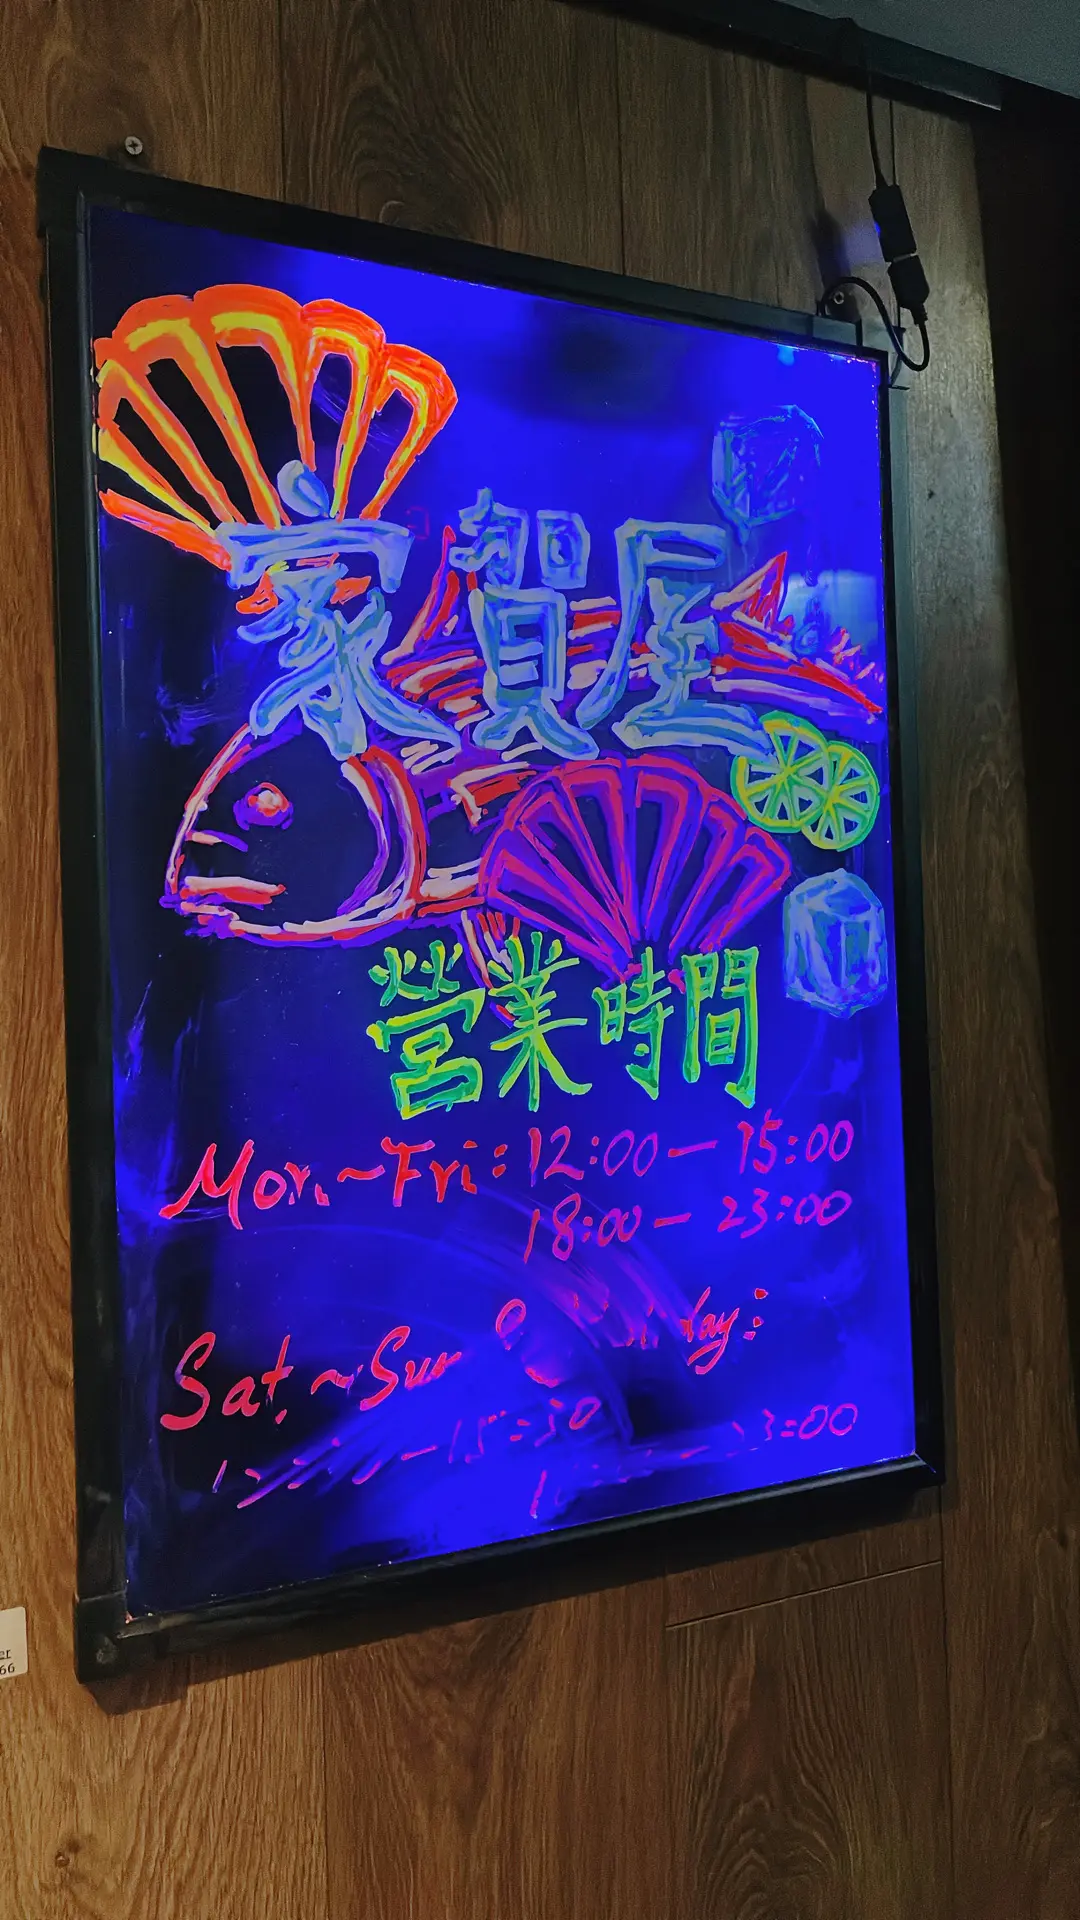 家賀屋
營業時間
Mon.~Fri.: 12:00 — 15:00
18:00 — 23:00
Sat.~Sun
15:30
23:00
66